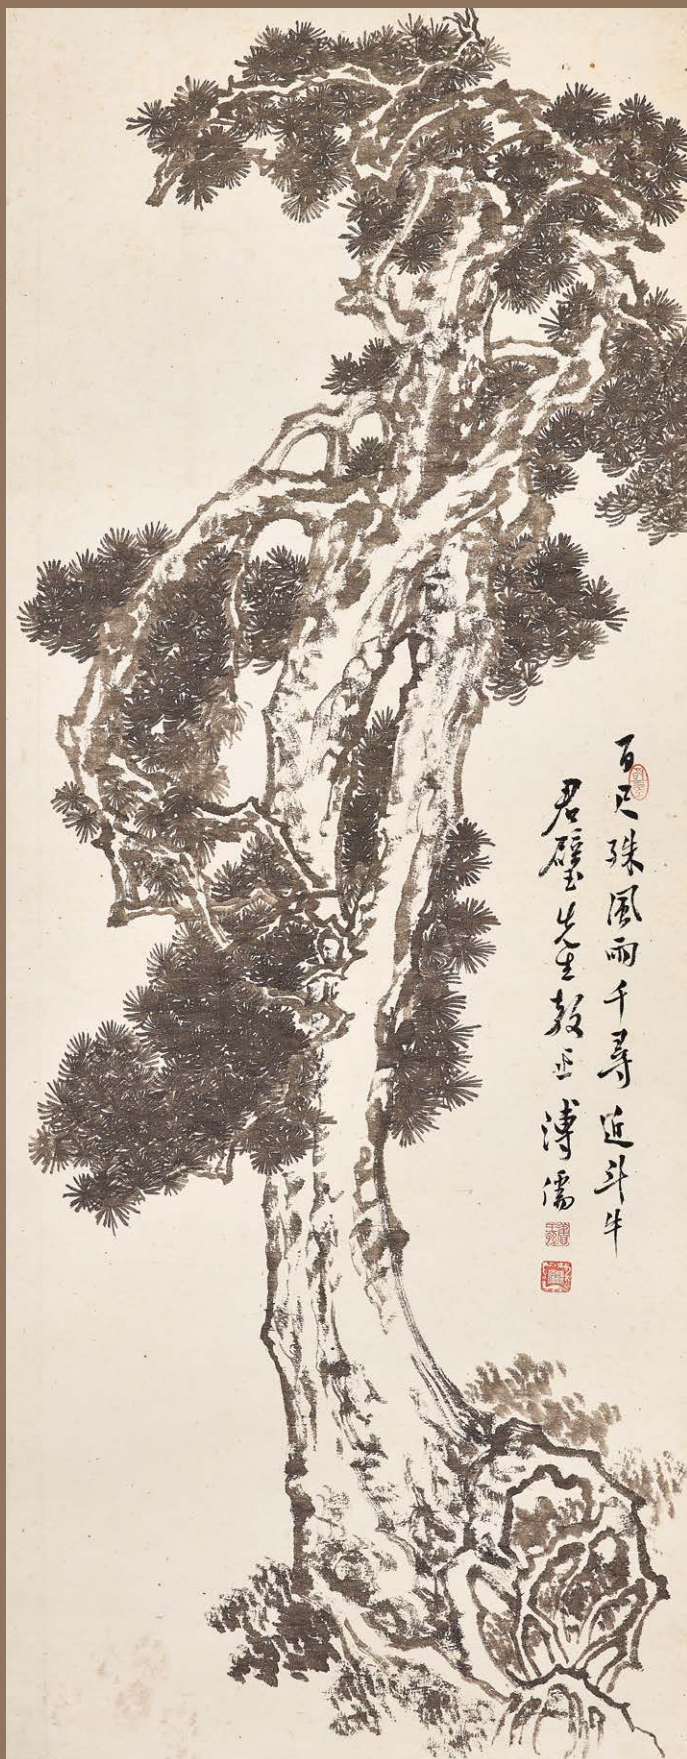 百尺殊風雨千尋近斗牛
君璧先生教正 溥儒